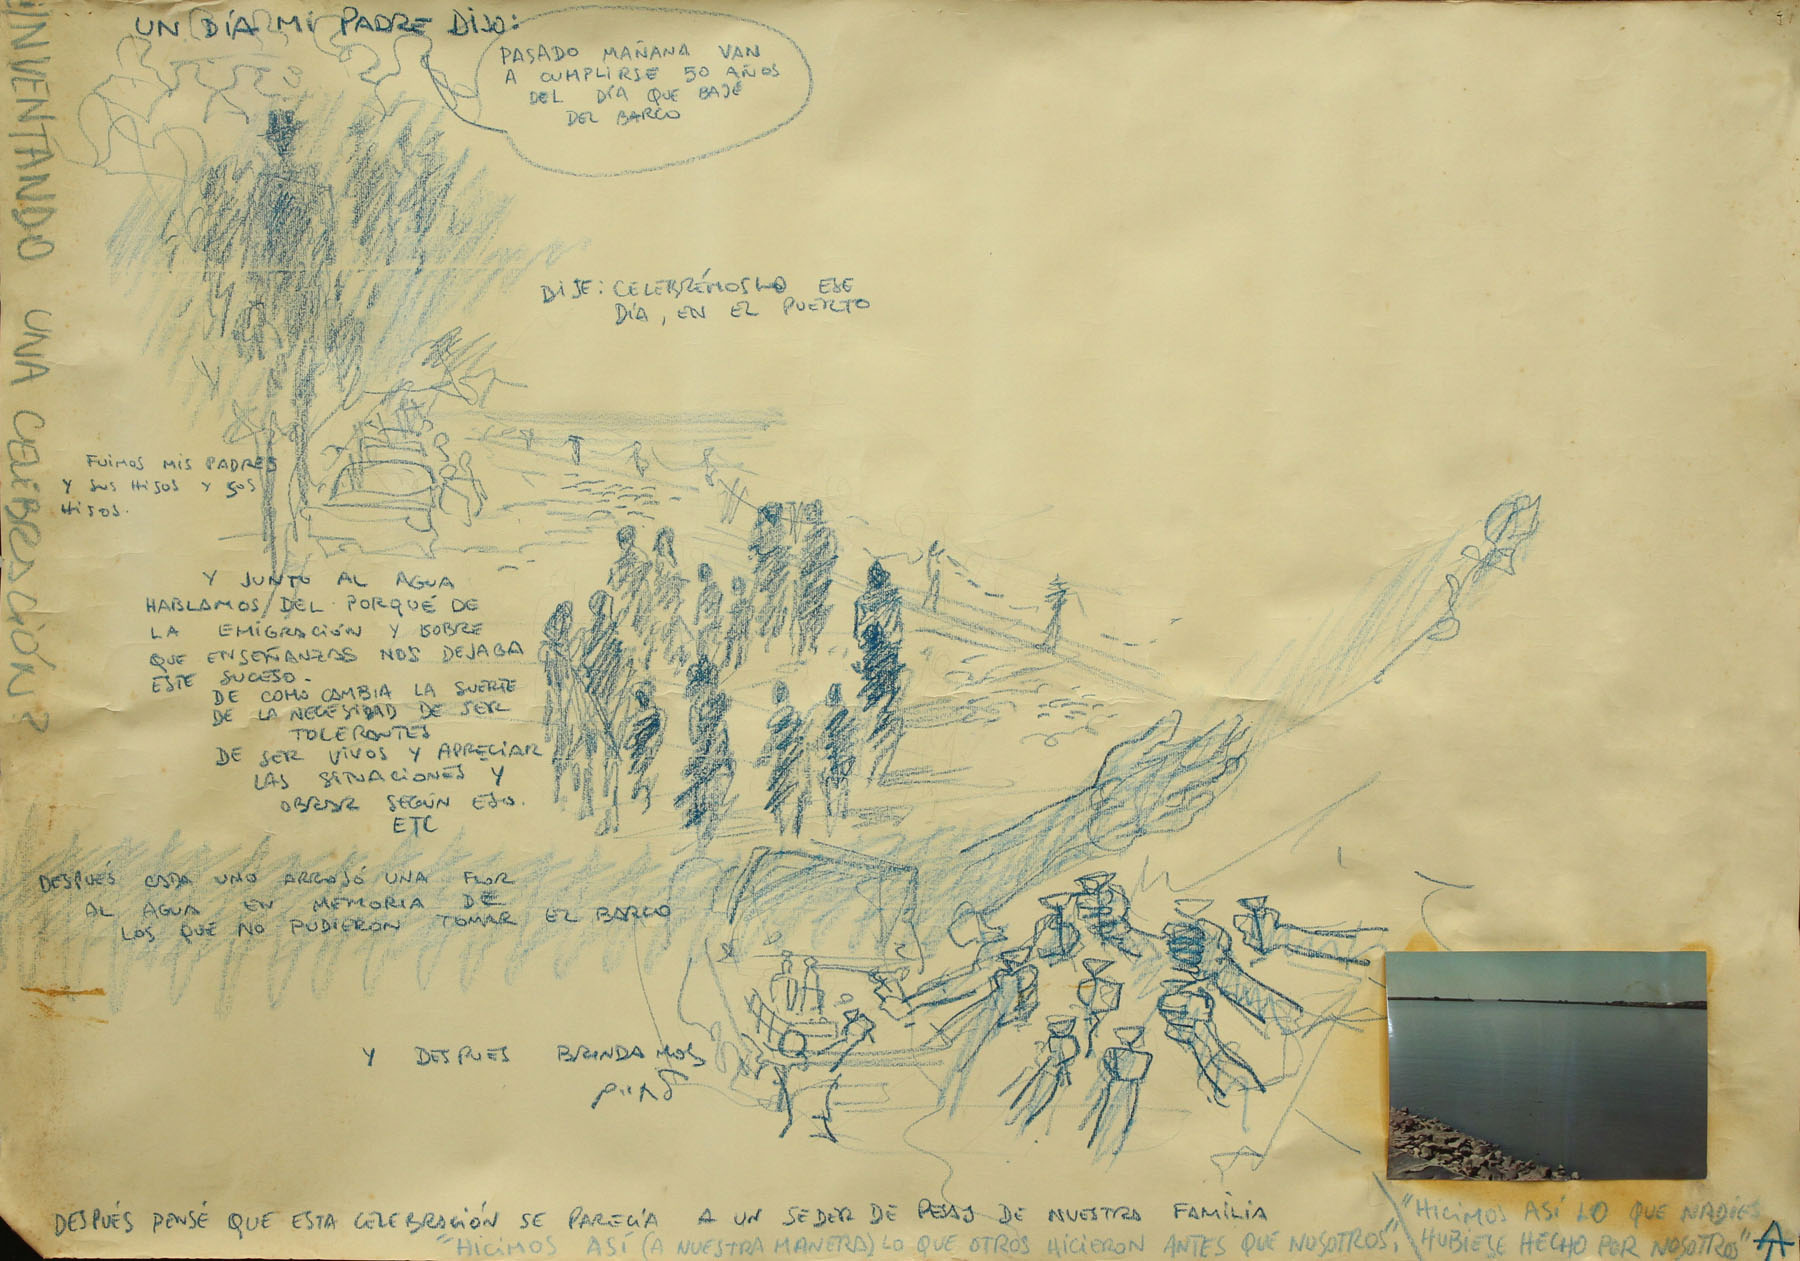 ¿INVENTANDO UNA CELEBRACIÓN?
UN DÍA MI PADRE DIJO:
PASADO MAÑANA VAN
A CUMPLIRSE 50 AÑOS
DEL DÍA QUE BAJÉ
DEL BARCO
DIJE: CELEBRÉMOSLO ESE
DÍA, EN EL PUERTO
FUIMOS MIS PADRES
Y SUS HIJOS Y SUS
HIJOS.
Y JUNTO AL AGUA
HABLAMOS DEL PORQUÉ DE
LA EMIGRACIÓN Y SOBRE
QUE ENSEÑANZAS NOS DEJABA
ESTE SUCESO.
DE COMO CAMBIA LA SUERTE
DE LA NECESIDAD DE SER
TOLERANTES
DE SER VIVOS Y APRECIAR
LAS SITUACIONES Y
OBRAR SEGÚN ESO.
ETC
DESPUÉS CADA UNO ARROJÓ UNA FLOR
AL AGUA EN MEMORIA DE
LOS QUE NO PUDIERON TOMAR EL BARCO
Y DESPUES BRINDAMOS
DESPUÉS PENSÉ QUE ESTA CELEBRACIÓN SE PARECÍA A UN SEDER DE PESAJ DE NUESTRA FAMILIA
"HICIMOS ASÍ (A NUESTRA MANERA) LO QUE OTROS HICIERON ANTES QUE NOSOTROS",
"HICIMOS ASÍ LO QUE NADIES
HUBIESE HECHO POR NOSOTROS"